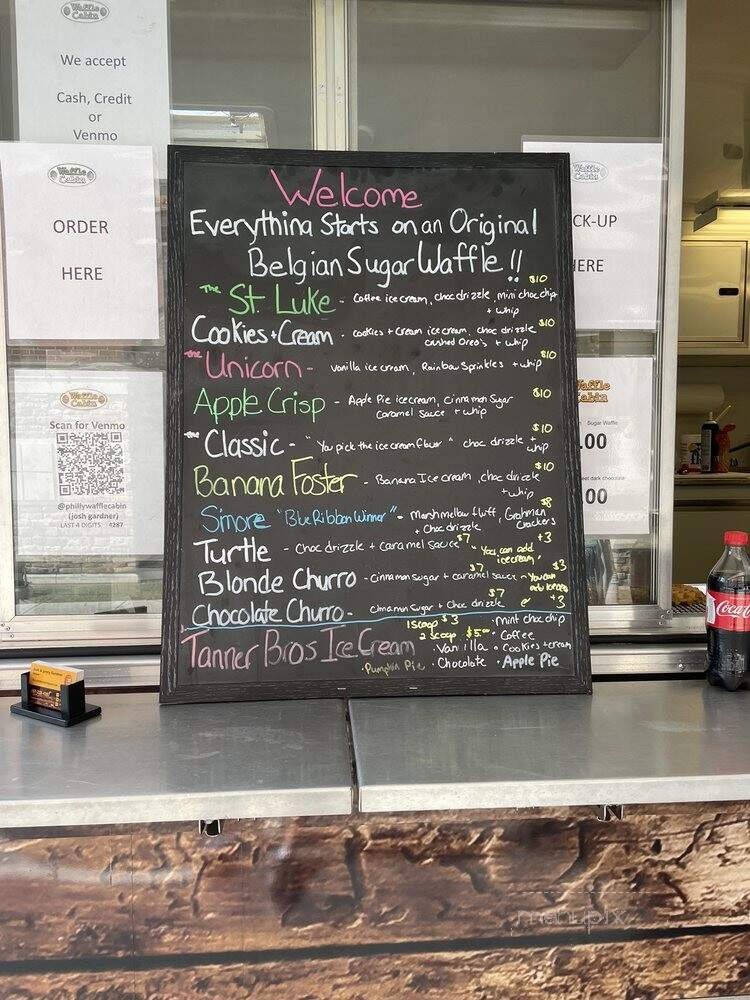 Waffle Cabin
We accept
Cash, Credit
or
Venmo
Waffle Cabin
ORDER
HERE
Waffle Cabin
Scan for Venmo
@phillywafflecabin
(josh gardner)
LAST 4 DIGITS 4287
Welcome
Everything Starts on an Original
Belgian Sugar Waffle !!
The St. Luke - Coffee ice cream, choc drizzle, mini choc chip + whip $10
Cookies + Cream - cookies + cream ice cream, choc drizzle, crushed Oreo's + whip $10
The Unicorn - Vanilla ice cream, Rainbow Sprinkles + whip $10
Apple Crisp - Apple Pie icecream, cinnamon sugar Caramel sauce + whip $10
The Classic - "You pick the ice cream flavor" choc drizzle + whip $10
Banana Foster - Banana Ice cream, choc drizzle + whip $10
S'more "Blue Ribbon Winner" - Marshmellow fluff, Grahman Crackers + Choc drizzle $8
Turtle - Choc drizzle + caramel sauce $7 "You can add icecream" +3
Blonde Churro - cinnamon sugar + caramel sauce $7 - You can add icecream $3
Chocolate Churro - cinnamon sugar + choc drizzle $7 +3
Tanner Bros Ice Cream 1 scoop $3
2 scoop $5
• mint choc chip
• Coffee
• Vanilla • Cookies + cream
• Pumpkin Pie • Chocolate • Apple Pie
Waffle Cabin
CK-UP
ERE
Waffle Cabin
Sugar Waffle
.00
dark chocolate
.00
Coca-C
menupix